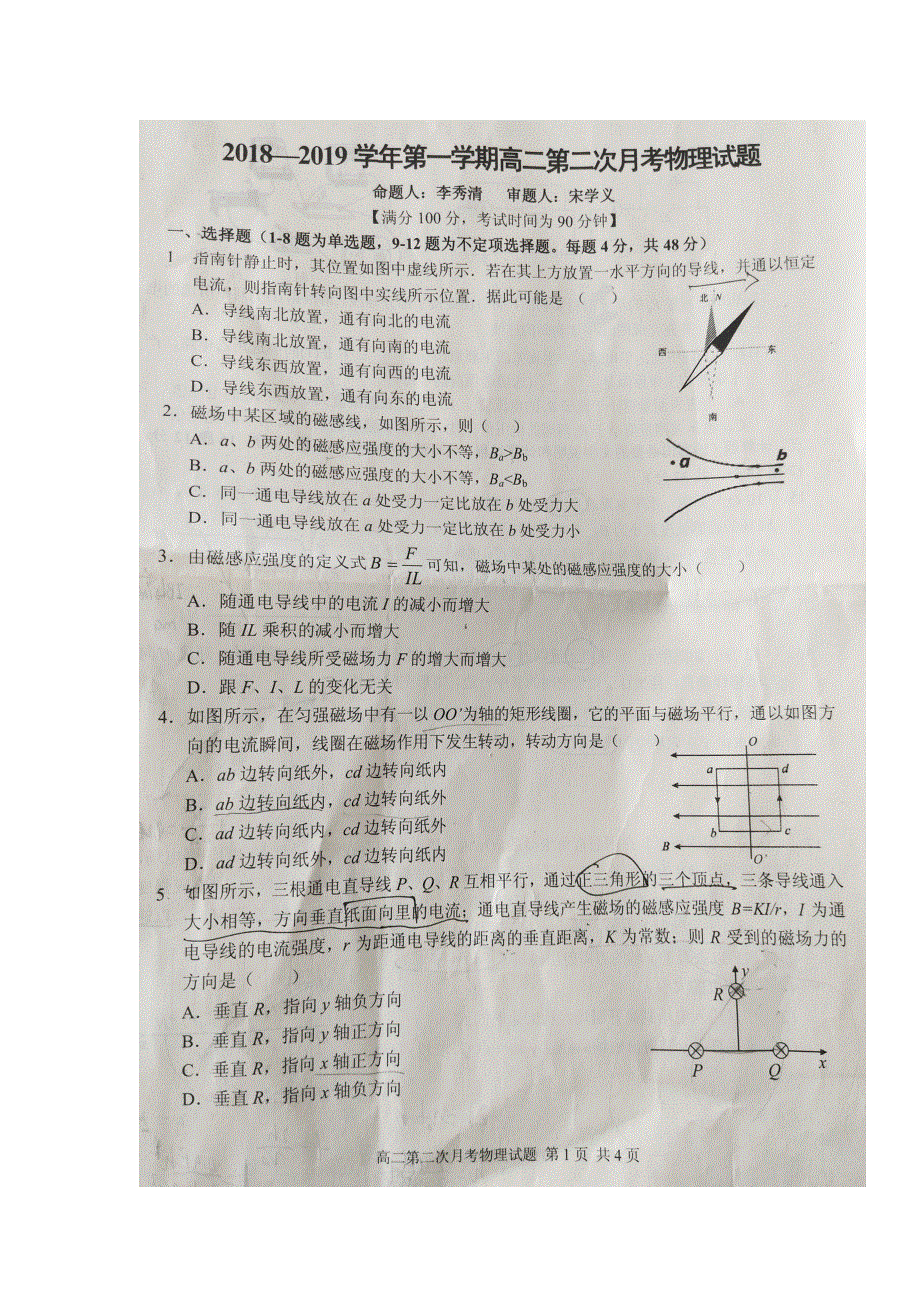 2018—2019 学年第一学期高二第二次月考物理试题
命题人：李秀清 审题人：宋学义
【满分 100 分，考试时间为 90 分钟】
一、选择题（1-8 题为单选题，9-12 题为不定项选择题。每题 4 分，共 48 分）
1 指南针静止时，其位置如图中虚线所示．若在其上方放置一水平方向的导线，并通以恒定
电流，则指南针转向图中实线所示位置．据此可能是（ ）
A．导线南北放置，通有向北的电流
B．导线南北放置，通有向南的电流
C．导线东西放置，通有向西的电流
D．导线东西放置，通有向东的电流
北 N
西 东
南
2．磁场中某区域的磁感线，如图所示，则（ ）
A．a、b 两处的磁感应强度的大小不等，Ba>Bb
B．a、b 两处的磁感应强度的大小不等，Ba<Bb
C．同一通电导线放在 a 处受力一定比放在 b 处受力大
D．同一通电导线放在 a 处受力一定比放在 b 处受力小
a b
3．由磁感应强度的定义式 B = F/IL 可知，磁场中某处的磁感应强度的大小（ ）
A．随通电导线中的电流 I 的减小而增大
B．随 IL 乘积的减小而增大
C．随通电导线所受磁场力 F 的增大而增大
D．跟 F、I、L 的变化无关
4．如图所示，在匀强磁场中有一以 OO’为轴的矩形线圈，它的平面与磁场平行，通以如图方
向的电流瞬间，线圈在磁场作用下发生转动，转动方向是（ ）
A．ab 边转向纸外，cd 边转向纸内
B．ab 边转向纸内，cd 边转向纸外
C．ad 边转向纸内，cd 边转向纸外
D．ad 边转向纸外，cd 边转向纸内
O
a d
b c
B
O’
5．如图所示，三根通电直导线 P、Q、R 互相平行，通过正三角形的三个顶点，三条导线通入
大小相等，方向垂直纸面向里的电流；通电直导线产生磁场的磁感应强度 B=KI/r，I 为通
电导线的电流强度，r 为距通电导线的距离的垂直距离，K 为常数；则 R 受到的磁场力的
方向是（ ）
A．垂直 R，指向 y 轴负方向
B．垂直 R，指向 y 轴正方向
C．垂直 R，指向 x 轴正方向
D．垂直 R，指向 x 轴负方向
y
R
P Q x
高二第二次月考物理试题 第 1 页 共 4 页